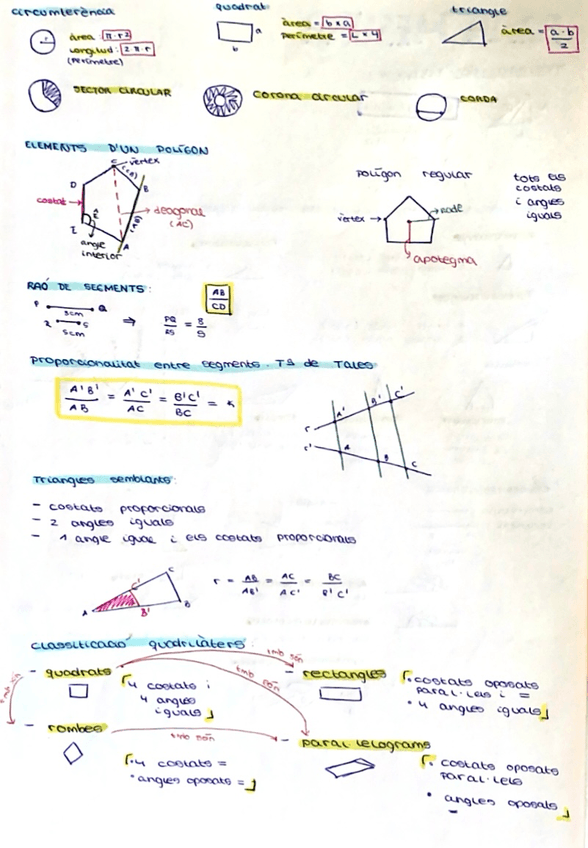 circumferència
àrea: π·r2
longitud: 2π·r
(perímetre)
quadrat
a
b
àrea = b x a
perímetre = L x 4
triangle
àrea = a·b
2
SECTOR CIRCULAR
corona circular
CORDA
ELEMENTS D'UN POLÍGON
vèrtex
C
D
B
costat
E
A
angle
interior
diagonal
(AC)
polígon regular
tots els
costats
i angles
iguals
vèrtex
radi
apotegma
RAÓ DE SEGMENTS:
AB
CD
P Q
8cm
R S
5cm
⇒ PQ = 8
RS 5
Proporcionalitat entre segments. TS de Tales
A'B' = A'C' = B'C' = k
AB AC BC
A' B' C'
r
r'
A B C
Triangles semblants:
- costats proporcionals
- 2 angles iguals
- 1 angle igual i els costats proporcionals
C
C'
A B' B
r = AB = AC = BC
AB' AC' B'C'
classificació quadrilàters:
- quadrats
4 costats i
4 angles
iguals
tmb són
tmb són
tmb són
- rectangles
· costats oposats
paral·lels i =
· 4 angles iguals
- rombes
tmb són
· 4 costats =
· angles oposats =
- paral·lelograms
· costats oposats
paral·lels
· angles oposats
=